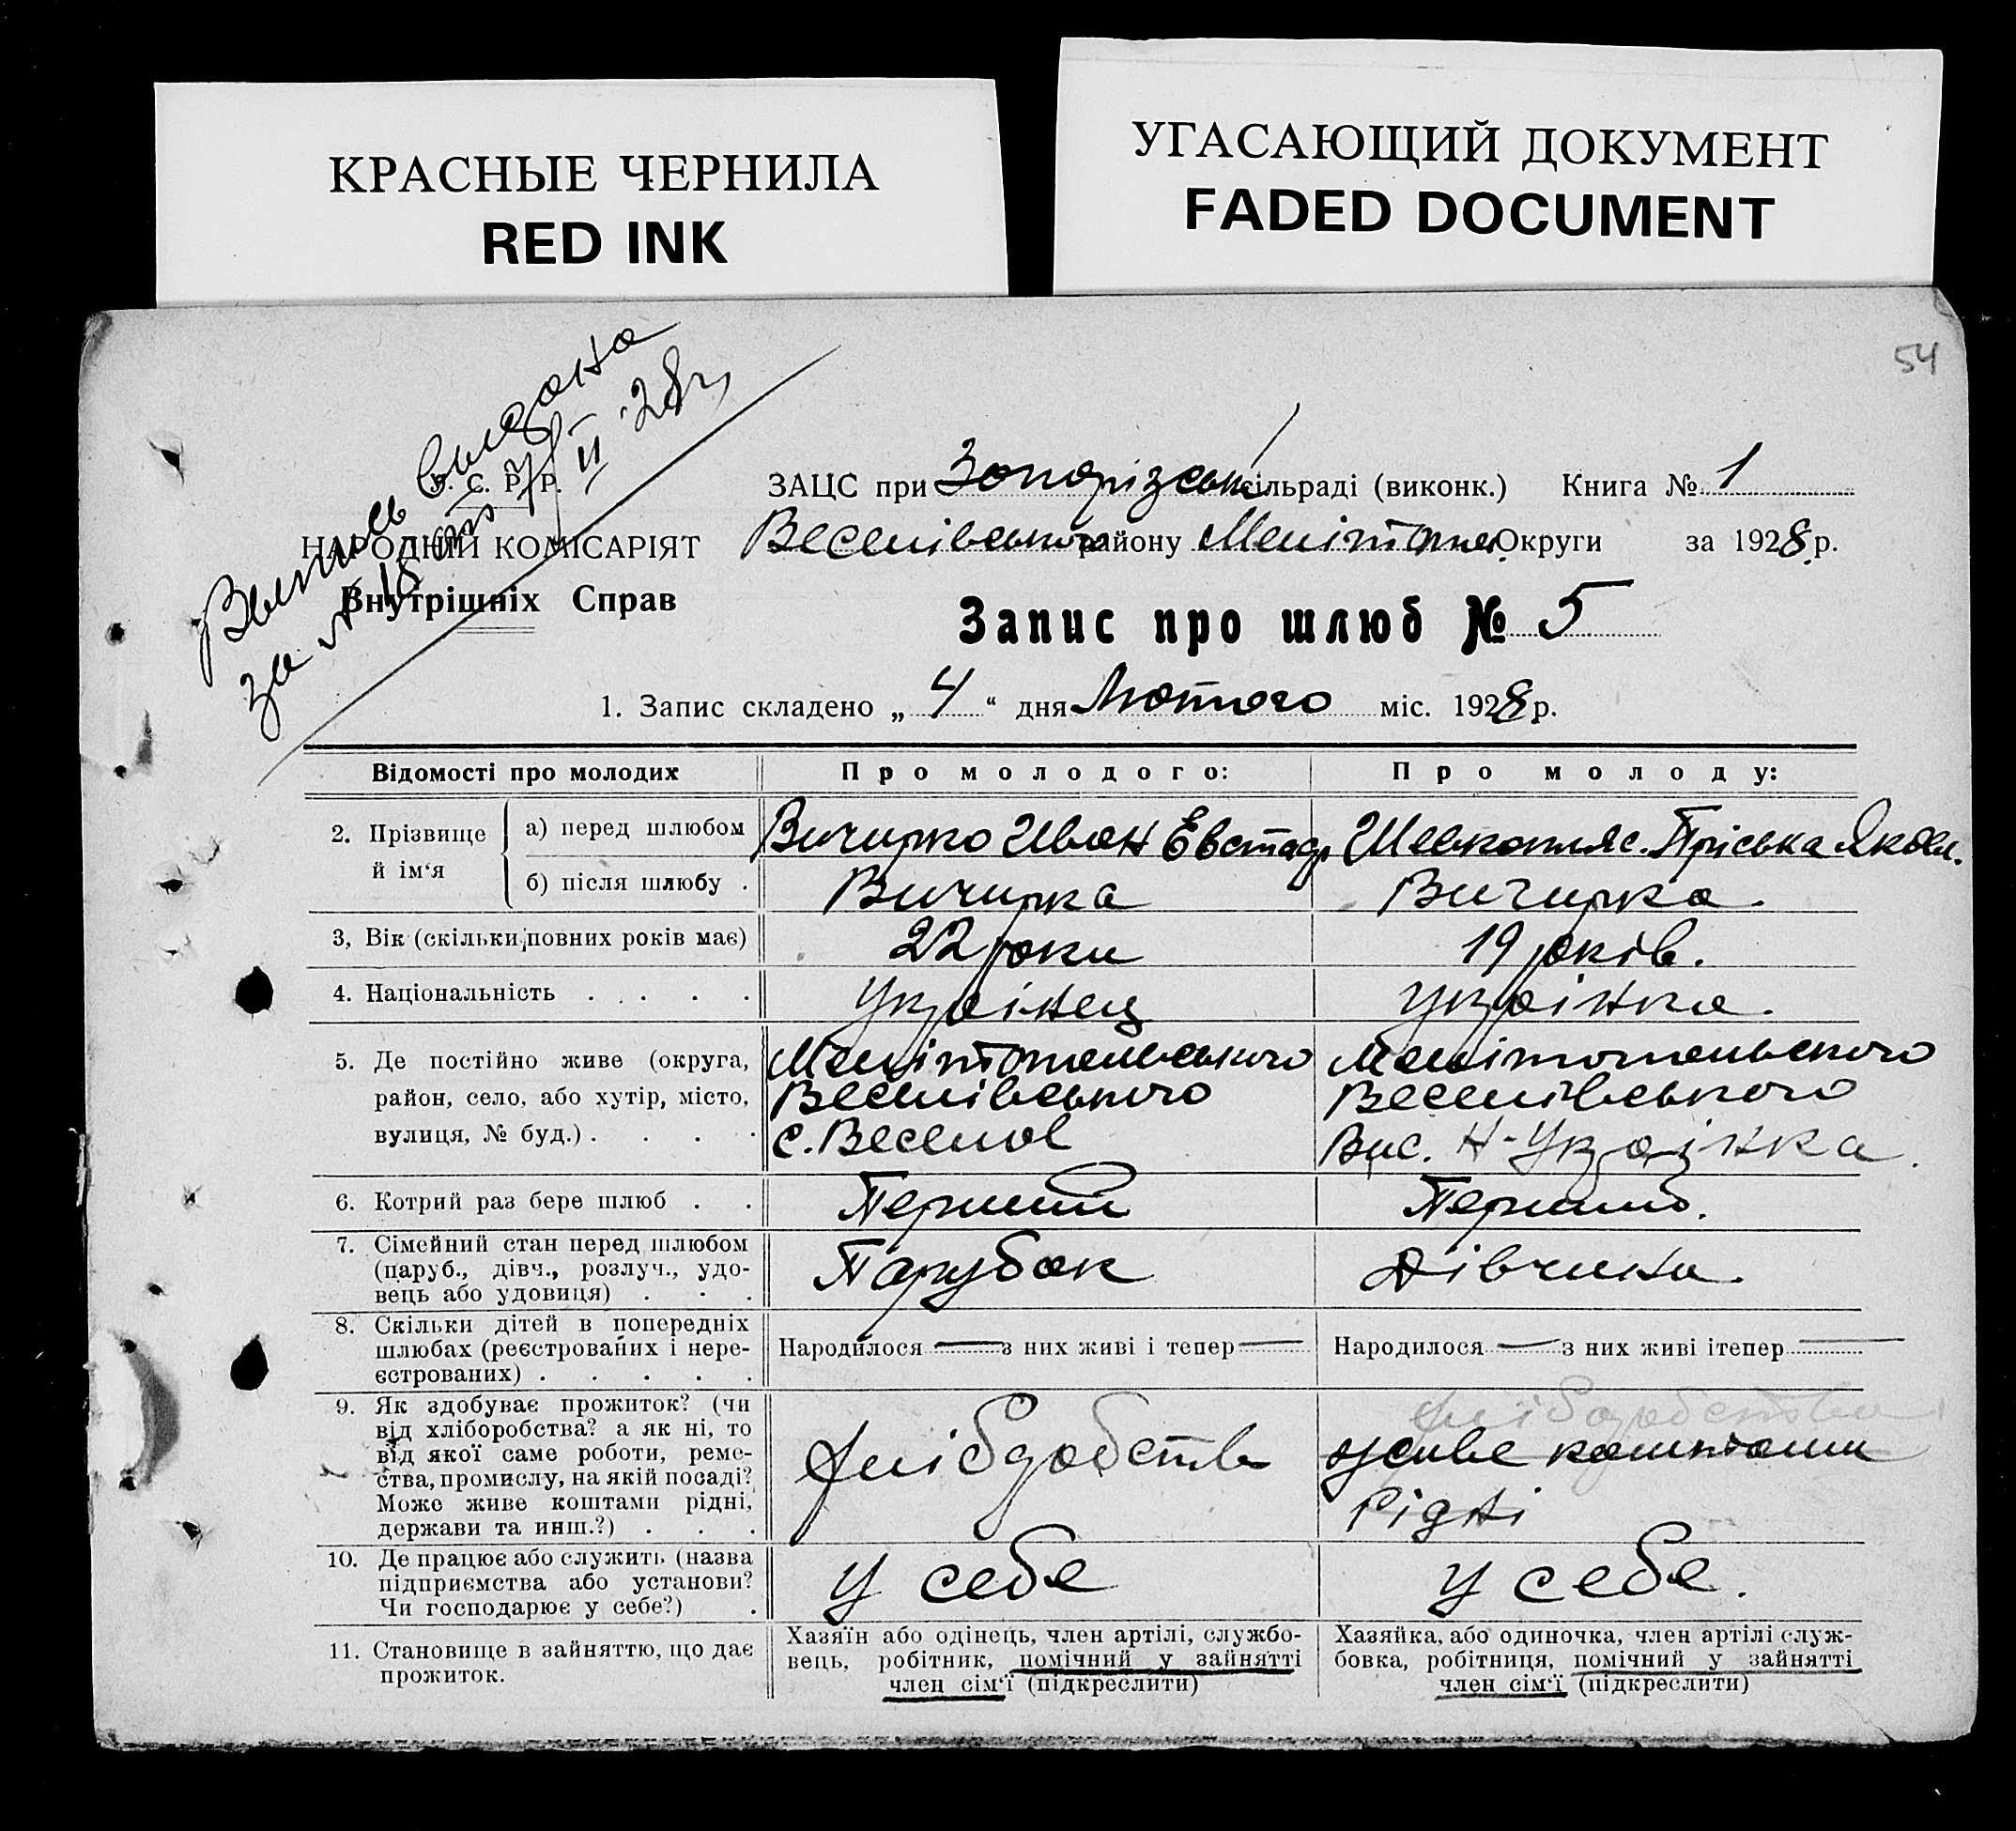 КРАСНЫЕ ЧЕРНИЛА
RED INK
УГАСАЮЩИЙ ДОКУМЕНТ
FADED DOCUMENT
54
Выпись выдана
за № 18
II 28 р.
У. С. Р. Р.
НАРОДНІЙ КОМІСАРІЯТ
Внутрішніх Справ
ЗАЦС при Запорізській сільраді (виконк.) Книга № 1
Веселівського району Мелітопол. Округи за 1928 р.
Запис про шлюб № 5
1. Запис складено „ 4 “ дня Лютого міс. 1928 р.
Відомості про молодих Про молодого: Про молоду:
2. Прізвище й ім‘я
а) перед шлюбом Вичирко Иван Евстафр Шевкопляс. Пріська Яковл.
б) після шлюбу . Вичирка Вичирка.
3, Вік (скільки повних років має) 22 роки 19 років.
4. Національність . . . . . Українец Українка.
5. Де постійно живе (округа, Мелітопольського Мелітопольського
район, село, або хутір, місто, Веселівського Веселівського
вулиця, № буд.) . . . . . с. Веселое Вис. Н-Українка.
6. Котрий раз бере шлюб . . Перший Перший.
7. Сімейний стан перед шлюбом
(паруб., дівч., розлуч., удо-
вець або удовиця) . . . Парубок Дівчина.
8. Скільки дітей в попередніх
шлюбах (реєстрованих і нере- Народилося — з них живі і тепер — Народилося — з них живі ітепер —
єстрованих) . . . . .
9. Як здобуває прожиток? (чи
від хліборобства? а як ні, то
від якої саме роботи, реме-
ства, промислу, на якій посаді?
Може живе коштами рідні,
держави та инш.?) . . .
живе коштами
рідні
10. Де працює або служить (назва
підприємства або установи? у себе у себе.
Чи господарює у себе?) .
11. Становище в зайняттю, що дає
прожиток.
Хазяїн або одінець, член артілі, службо-
вець, робітник, помічний у зайнятті
член сім‘ї (підкреслити)
Хазяйка, або одиночка, член артілі служ-
бовка, робітниця, помічний у зайнятті
член сім‘ї (підкреслити)